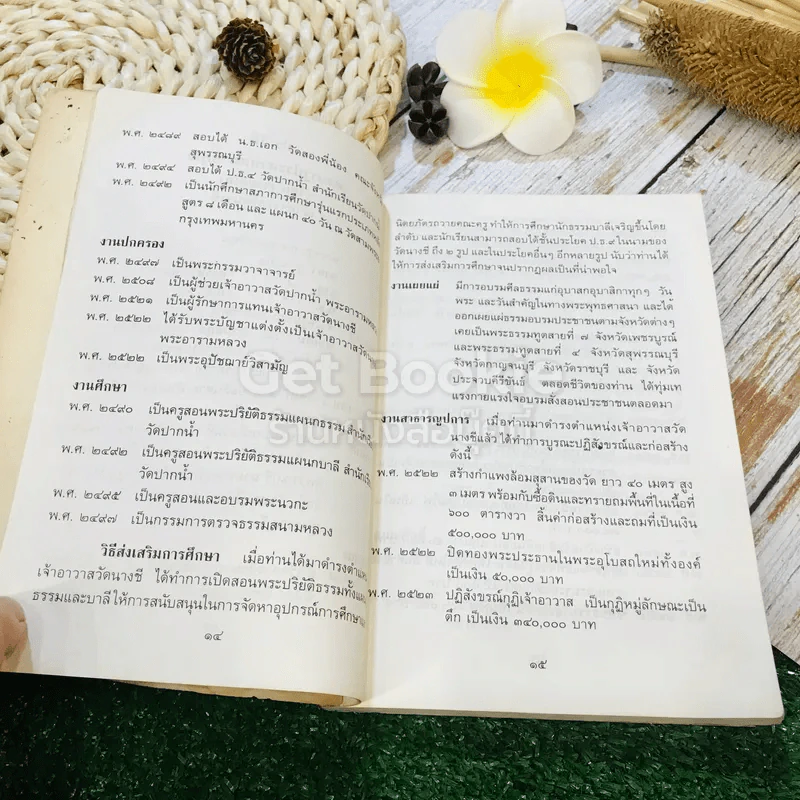 พ.ศ. ๒๔๘๙ สอบได้ น.ธ.เอก วัดสองพี่น้อง
สุพรรณบุรี
พ.ศ. ๒๔๙๔ สอบได้ ป.ธ.๔ วัดปากน้ำ สำนักเรียนวัดปากน้ำ
พ.ศ. ๒๔๙๒ เป็นนักศึกษาสภาการศึกษารุ่นแรกประเภท
สูตร ๘ เดือน และ แผนก ๔๐ วัน ณ
กรุงเทพมหานคร
งานปกครอง
พ.ศ. ๒๔๙๗ เป็นพระกรรมวาจาจารย์
พ.ศ. ๒๕๐๘ เป็นผู้ช่วยเจ้าอาวาสวัดปากน้ำ พระอารามหลวง
พ.ศ. ๒๕๒๑ เป็นผู้รักษาการแทนเจ้าอาวาสวัดนางชี
พ.ศ. ๒๕๒๒ ได้รับพระบัญชาแต่งตั้งเป็นเจ้าอาวาส
พระอารามหลวง
พ.ศ. ๒๕๒๒ เป็นพระอุปัชฌาย์วิสามัญ
งานศึกษา
พ.ศ. ๒๔๙๐ เป็นครูสอนพระปริยัติธรรมแผนกธรรม
วัดปากน้ำ
พ.ศ. ๒๔๙๒ เป็นครูสอนพระปริยัติธรรมแผนกบาลี
วัดปากน้ำ
พ.ศ. ๒๔๙๕ เป็นครูสอนและอบรมพระนวกะ
พ.ศ. ๒๔๙๗ เป็นกรรมการตรวจธรรมสนามหลวง
วิธีส่งเสริมการศึกษา เมื่อท่านได้มาดำรงตำแหน่ง
เจ้าอาวาสวัดนางชี ได้ทำการเปิดสอนพระปริยัติธรรม
ธรรมและบาลีให้การสนับสนุนในการจัดหาอุปกรณ์การศึกษา
๑๔
นิตยภัตรถวายคณะครู ทำให้การศึกษานักธรรมบาลีเจริญขึ้นโดย
ลำดับ และนักเรียนสามารถสอบได้ชั้นประโยค ป.ธ.๙ ในนามของ
วัดนางชี ถึง ๒ รูป และในประโยคอื่นๆ อีกหลายรูป นับว่าท่านได้
ให้การส่งเสริมการศึกษาจนปรากฏผลเป็นที่น่าพอใจ
งานเผยแผ่ มีการอบรมศีลธรรมแก่อุบาสกอุบาสิกาทุกๆ วัน
พระ และวันสำคัญในทางพระพุทธศาสนา และได้
ออกเผยแผ่ธรรมอบรมประชาชนตามจังหวัดต่างๆ
เคยเป็นพระธรรมทูตสายที่ ๗ จังหวัดเพชรบูรณ์
และพระธรรมทูตสายที่ ๔ จังหวัดสุพรรณบุรี
จังหวัดกาญจนบุรี จังหวัดราชบุรี และ จังหวัด
ประจวบคีรีขันธ์ ตลอดชีวิตของท่าน ได้ทุ่มเท
แรงกายแรงใจอบรมสั่งสอนประชาชนตลอดมา
งานสาธารณูปการ เมื่อท่านมาดำรงตำแหน่งเจ้าอาวาสวัด
นางชีแล้ว ได้ทำการบูรณะปฏิสังขรณ์และก่อสร้าง
ดังนี้
พ.ศ. ๒๕๒๒ สร้างกำแพงล้อมสุสานของวัด ยาว ๔๐ เมตร สูง
๓ เมตร พร้อมกับซื้อดินและทรายถมพื้นที่ในเนื้อที่
๖๐๐ ตารางวา สิ้นค่าก่อสร้างและถมที่เป็นเงิน
๕๐๐,๐๐๐ บาท
พ.ศ. ๒๕๒๒ ปิดทองพระประธานในพระอุโบสถใหม่ทั้งองค์
เป็นเงิน ๕๐,๐๐๐ บาท
พ.ศ. ๒๕๒๓ ปฏิสังขรณ์กุฏิเจ้าอาวาส เป็นกุฏิหมู่ลักษณะเป็น
ตึก เป็นเงิน ๓๔๐,๐๐๐ บาท
๑๕